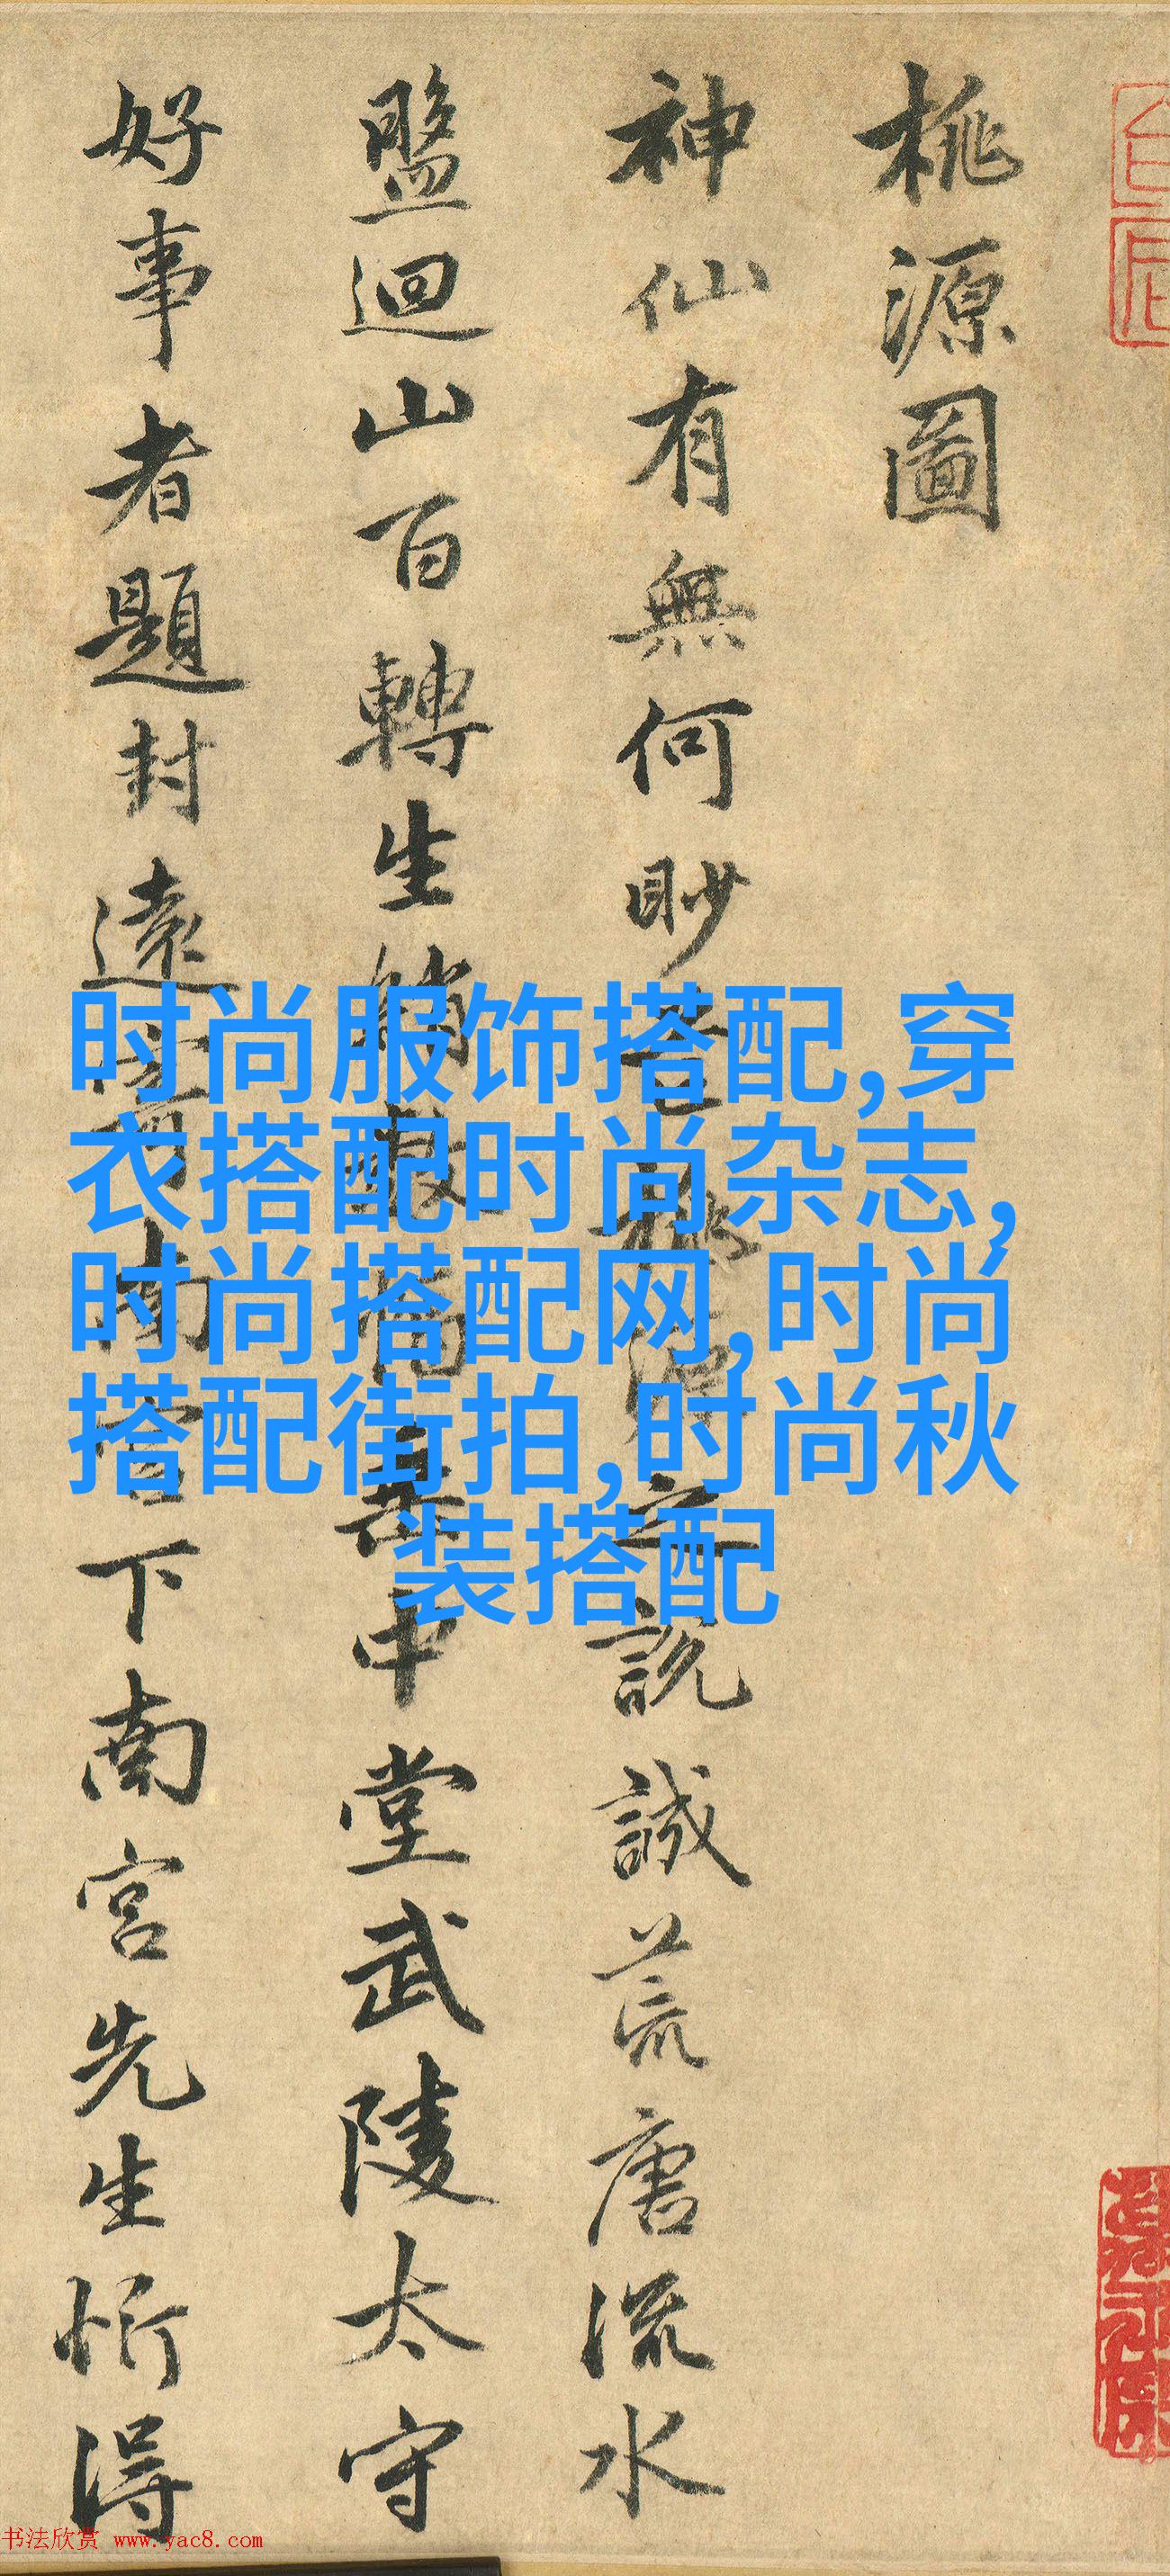 桃源圖
神仙有無何眇芒桃源之說誠荒唐流水
盤迴山百轉生綃數幅垂中堂武陵太守
好事者題封遠寄南宮下南宮先生忻得
时尚服饰搭配,穿
衣搭配时尚杂志,
时尚搭配网,时尚
搭配街拍,时尚秋
装搭配
书法欣赏 www.yac8.com